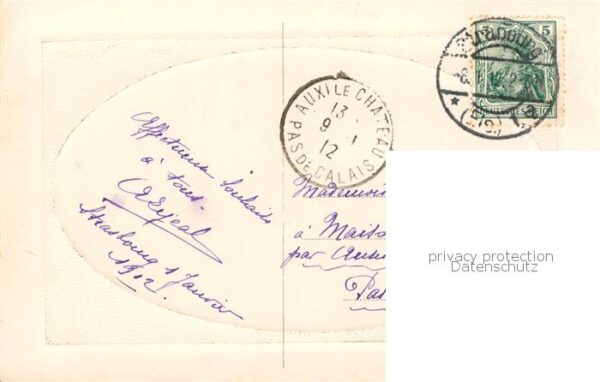 Affectueux Souhaits
à tous
Strasbourg 1 Janvier
1912.
AUXI LE CHATEAU
13
9 1
12
PAS DE CALAIS
Strassburg
5
(Els.)
Mademois
à Maito
par
Pas
privacy protection
Datenschutz